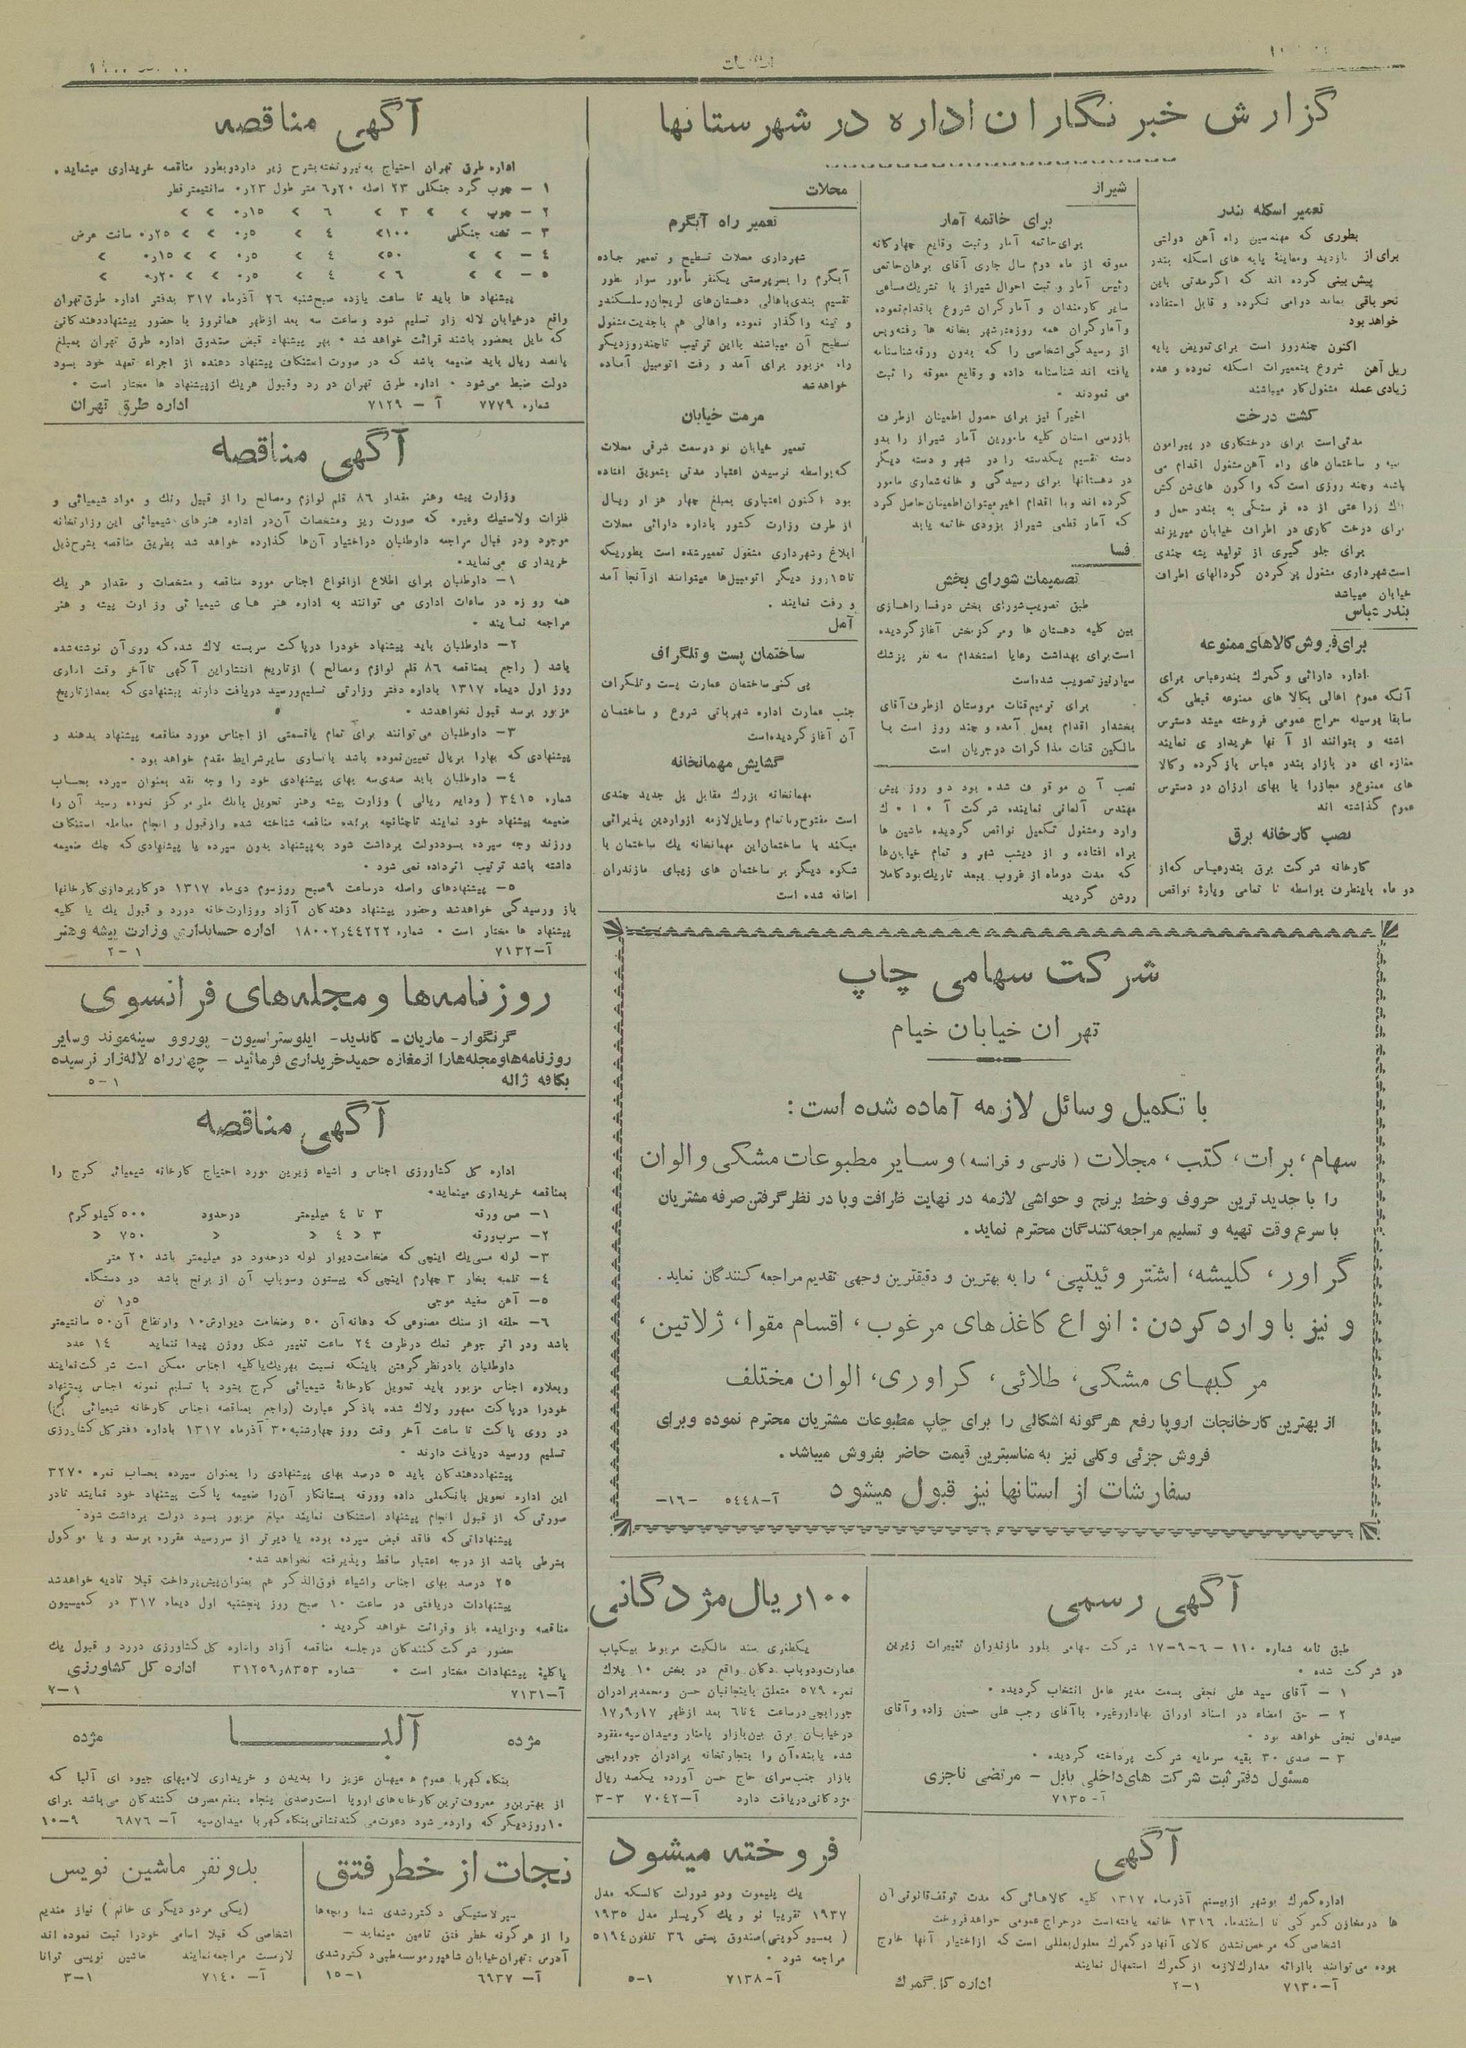 گزارش خبرنگاران اداره در شهرستانها
تعمیر اسکله بندر
بطوری که مهندسین راه آهن دولتی
برای از بازدید ومعاینهٔ پایه های اسکله بندر
پیش بینی کرده اند که اگر مدتی باین
نحو باقی بماند دوامی نکرده و قابل استفاده
خواهد بود
اکنون چندروز است برای تعویض پایه
ریل آهن شروع بتعمیرات اسکله نموده و عده
زیادی عمله مشغول کار میباشند
کشت درخت
مدتی است برای درختکاری در پیرامون
و ساختمان های راه آهن مشغول اقدام می
باشد وچند روزی است که واگون های شن کش
زراعتی از ده فرسنگی به بندر حمل و
برای درخت کاری در اطراف خیابان میریزند
برای جلو گیری از تولید پشه چندی
است شهرداری مشغول پر کردن گودالهای اطراف
خیابان میباشد
بندرعباس
برای فروش کالاهای ممنوعه
اداره دارائی و گمرك بندرعباس برای
آنکه عموم اهالی بکالا های ممنوعه قبطی که
سابقا بوسیله حراج عمومی فروخته میشد دسترس
داشته و بتوانند از آنها خریداری نمایند
مغازه ای در بازار بندر عباس باز کرده وکالا
های ممنوع و مجازرا با بهای ارزان در دسترس
عموم گذاشته اند
نصب کارخانه برق
کارخانه شرکت برق بندرعباس که از
دو ماه باینطرف بواسطه نا تمامی وپارهٔ نواقص
شیراز
برای خاتمه آمار
برای خاتمه آمار وثبت وقایع چهارگانه
معوقه از ماه دوم سال جاری آقای برهان حاتمی
رئیس آمار و ثبت احوال شیراز با تشریك مساعی
سایر کارمندان و آمارگران شروع باقدام نموده
وآمارگران همه روزه در شهر بخانه ها رفته و پس
از رسیدگی اشخاصی را که بدون ورقه شناسنامه
یافته اند شناسنامه داده و وقایع معوقه را ثبت
می نمودند ٠
اخیراً نیز برای حصول اطمینان از طرف
بازرسی استان کلیه مامورین آمار شیراز را بدو
دسته تقسیم یکدسته را در شهر و دسته دیگر
در دهستانها برای رسیدگی و خانه شماری مامور
کرده اند وبا اقدام اخیر میتوان اطمینان حاصل کرد
که آمار قطعی شیراز بزودی خاتمه یابد
فسا
تصمیمات شورای بخش
طبق تصویب شورای بخش در فسا راهسازی
بین کلیه دهستان ها ومرکز بخش آغاز گردیده
است برای بهداشت رعایا استخدام سه نفر پزشك
سیار نیز تصویب شده است
برای ترمیم قنات مروستان از طرف آقای
بخشدار اقدام بعمل آمده و چند روز است با
مالکین قنات مذاکرات در جریان است
نصب آن موقوف شده بود دو روز پیش
مهندس آلمانی نماینده شرکت آ ۱ ۰ ك
وارد ومشغول تکمیل نواقص گردیده ماشین ها
براه افتاده و از دیشب شهر و تمام خیابان ها
که مدت دوماه از غروب ببعد تاریك بود کاملا
روشن گردید
محلات
تعمیر راه آبگرم
شهرداری محلات تسطیح و تعمیر جاده
آبگرم را بسرپرستی یکنفر مأمور سوار بطور
تقسیم بندی باهالی دهستان های لریجان وسلسکندر
و تینه واگذار نموده واهالی هم باجدیت مشغول
تسطیح آن میباشند با این ترتیب تا چند روز دیگر
راه مزبور برای آمد و رفت اتومبیل آماده
خواهد شد
مرمت خیابان
تعمیر خیابان نو در سمت شرقی محلات
که بواسطه نرسیدن اعتبار مدتی بتعویق افتاده
بود اکنون اعتباری بمبلغ چهار هزار ریال
از طرف وزارت کشور باداره دارائی محلات
ابلاغ وشهرداری مشغول تعمیر شده است بطوریکه
تا ۱۵ روز دیگر اتومبیل ها میتوانند از آنجا آمد
و رفت نمایند ٠
آمل
ساختمان پست و تلگراف
پی کنی ساختمان عمارت پست و تلگراف
جنب عمارت اداره شهربانی شروع و ساختمان
آن آغاز گردیده است
گشایش مهمانخانه
مهمانخانه بزرك مقابل پل جدید چندی
است مفتوح وبا تمام وسایل لازمه از واردین پذیرائی
میکند با ساختمان این مهمانخانه یك ساختمان با
شکوه دیگر بر ساختمان های زیبای مازندران
اضافه شده است
شرکت سهامی چاپ
تهران خیابان خیام
با تکمیل وسائل لازمه آماده شده است :
سهام، برات، کتب، مجلات (فارسی و فرانسه) وسایر مطبوعات مشکی والوان
را با جدید ترین حروف وخط برنج و حواشی لازمه در نهایت ظرافت وبا در نظر گرفتن صرفه مشتریان
با سرع وقت تهیه و تسلیم مراجعه کنندگان محترم نماید.
گراور، کلیشه، اشتر وئیتپی، را به بهترین و دقیقترین وجهی تقدیم مراجعه کنندگان نماید.
و نیز با وارد کردن : انواع کاغذهای مرغوب، اقسام مقوا، ژلاتین،
مرکبهای مشکی، طلائی، گراوری، الوان مختلف
از بهترین کارخانجات اروپا رفع هرگونه اشکالی را برای چاپ مطبوعات مشتریان محترم نموده وبرای
فروش جزئی وکلی نیز به مناسبترین قیمت حاضر بفروش میباشد.
سفارشات از استانها نیز قبول میشود آ-۵۴۴۸ -۱۶-
آگهی رسمی
طبق نامه شماره ۱۱۰ - ۶-۹-۱۷ شرکت سهامی بلور مازندران تغییرات زیرین
در شرکت شده ٠
۱ - آقای سید علی نجفی بسمت مدیر عامل انتخاب گردیده ٠
۲ - حق امضاء در اسناد اوراق بهادار وغیره باآقای رجب علی حسین زاده وآقای
سیدعلی نجفی خواهد بود ٠
۳ - صدی ۳۰ بقیه سرمایه شرکت پرداخته گردیده ٠
مسئول دفتر ثبت شرکت های داخلی بابل - مرتضی ناجزی
آ- ۷۱۳۵
آگهی
اداره گمرك بوشهر از بیستم آذرماه ۱۳۱۷ کلیه کالاهائی که مدت توقف قانونی آن
ها در مخازن گمرکی تا اسفندماه ۱۳۱۶ خاتمه یافته است در حراج عمومی خواهد فروخت
اشخاصی که مرخص نشدن کالای آنها در گمرك معلول بعللی است که از اختیار آنها خارج
بوده می توانند باارائه مدارك لازمه از گمرك استمهال نمایند
آ-۷۱۳۰ ۱-۲ اداره کل گمرك
۱۰۰ ریال مژدگانی
یکطغری سند مالکیت مربوط بیکباب
عمارت ودوباب دکان واقع در بخش ۱۰ پلاك
نمره ۵۷۹ متعلق باینجانبان حسن ومحمد برادران
جورابچی در ساعت ٤ تا ٦ بعد از ظهر ۱۷ر۹ر۱۷
در خیابان برق بین بازار پامنار ومیدان سپه مفقود
شده یابنده آن را بتجارتخانه برادران جورابچی
بازار جنب سرای حاج حسن آورده یکصد ریال
مژدگانی دریافت دارد آ-۷۰۴۲ ۳-۳
فروخته میشود
یك پلیموت ودو شورلت کالسکه مدل
۱۹۳۷ تقریبا نو و یك کریسلر مدل ۱۹۳۵
( بمسیو کوینی) صندوق پستی ۳۶ تلفون ۵۱۹۴
مراجعه شود ٠
آ-۷۱۳۸ ۱-۵
آگهی مناقصه
اداره طرق تهران احتیاج به تیر و تخته بشرح زیر دارد و بطور مناقصه خریداری مینماید ٠
۱ - چوب گرد جنگلی ۲۳ اصله ۲۰ر۶ متر طول ۲۳ر۰ سانتیمتر قطر
۲ - چوب > > ۳ > ۶ > ۱۵ر۰ > >
۳ - تخته جنگلی ۱۰۰> ۴ > ۵ر۰ > > ۲۵ر۰ سانت عرض
۴ - > > ۵۰> ۴ > ۵ر۰ > > ۱۵ر۰ >
۵ - > > ۶> ۴ > ۵ر۰ > > ۲۰ر۰ >
پیشنهاد ها باید تا ساعت یازده صبح شنبه ۲۶ آذرماه ۳۱۷ بدفتر اداره طرق تهران
واقع در خیابان لاله زار تسلیم شود وساعت سه بعد از ظهر همانروز با حضور پیشنهاد دهندگانی
که مایل بحضور باشند قرائت خواهد شد ٠ بهر پیشنهاد قبض صندوق اداره طرق تهران بمبلغ
پانصد ریال باید ضمیمه باشد که در صورت استنکاف پیشنهاد دهنده از اجراء تعهد خود بسود
دولت ضبط می شود ٠ اداره طرق تهران در رد وقبول هریك از پیشنهاد ها مختار است ٠
شماره ۷۷۷۹ آ - ۷۱۲۹ اداره طرق تهران
آگهی مناقصه
وزارت پیشه وهنر مقدار ۸۶ قلم لوازم ومصالح را از قبیل رنك و مواد شیمیائی و
فلزات ولاستیك وغیره که صورت ریز ومشخصات آن در اداره هنرهای شیمیائی این وزارتخانه
موجود ودر قبال مراجعه داوطلبان در اختیار آن ها گذارده خواهد شد بطریق مناقصه بشرح ذیل
خریداری می نماید ٠
۱- داوطلبان برای اطلاع از انواع اجناس مورد مناقصه و مشخصات و مقدار هر یك
همه روزه در ساعات اداری می توانند به اداره هنر های شیمیائی وزارت پیشه و هنر
مراجعه نمایند ٠
۲- داوطلبان باید پیشنهاد خود را در پاکت سربسته لاك شده که روی آن نوشته شده
باشد ( راجع بمناقصه ۸۶ قلم لوازم و مصالح ) از تاریخ انتشار این آگهی تا آخر وقت اداری
روز اول دیماه ۱۳۱۷ باداره دفتر وزارتی تسلیم و رسید دریافت دارند پیشنهادی که بعد از تاریخ
مزبور برسد قبول نخواهد شد ٠
۳- داوطلبان می توانند برای تمام یا قسمتی از اجناس مورد مناقصه پیشنهاد بدهند و
پیشنهادی که بها را بریال تعیین نموده باشد با تساوی سایر شرایط مقدم خواهد بود ٠
۴- داوطلبان باید صدی سه بهای پیشنهادی خود را وجه نقد بعنوان سپرده بحساب
شماره ۳۴۱۵ ( ودایع ریالی ) وزارت پیشه وهنر تحویل بانك ملی مرکز نموده رسید آن را
ضمیمه پیشنهاد خود نمایند تا چنانچه برنده مناقصه شناخته شده واز قبول و انجام معامله استنکاف
ورزند وجه سپرده بسود دولت برداشت شود به پیشنهاد بدون سپرده یا پیشنهادی که چك ضمیمه
داشته باشد ترتیب اثر داده نمی شود ٠
۵- پیشنهادهای واصله در ساعت ۹ صبح روز سوم دی ماه ۱۳۱۷ در کارپردازی کارخانها
باز ورسیدگی خواهد شد وحضور پیشنهاد دهندگان آزاد ووزارت خانه در رد و قبول یك یا کلیه
پیشنهاد ها مختار است ٠ شماره ۴۴۲۲۲ر۱۸۰۰۲ اداره حسابداری وزارت پیشه و هنر
آ-۷۱۳۲ ۱-۲
روزنامه ها و مجله های فرانسوی
گرنگوار - ماریان - کاندید - ایلوستراسیون - پوروو سینه موند وسایر
روزنامه ها و مجله ها را از مغازه حمید خریداری فرمائید - چهار راه لاله زار نرسیده
بکافه ژاله ۱-۵
آگهی مناقصه
اداره کل کشاورزی اجناس و اشیاء زیرین مورد احتیاج کارخانه شیمیائی کرج را
بمناقصه خریداری مینماید ٠
۱- مس ورقه ۳ تا ۴ میلیمتر در حدود ۵۰۰ کیلوگرم
۲- سرب ورقه ۳ > ۴ > > ۷۵۰ >
۳- لوله مسی یك اینچی که ضخامت دیوار لوله در حدود دو میلیمتر باشد ۲۰ متر
۴- تلمبه بخار ۳ چهارم اینچی که پیستون وسوپاپ آن از برنج باشد دو دستگاه
۵- آهن سفید موجی ۵ر۱ تن
۶- حلقه از سنك مصنوعی که دهانه آن ۵۰ وضخامت دیوارش ۱۰ وارتفاع آن ۵۰ سانتیمتر
باشد ودر اثر جوهر نمك در ظرف ۲۴ ساعت تغییر شکل ووزن پیدا ننماید ۱۴ عدد
داوطلبان با در نظر گرفتن باینکه نسبت بهر یك یا کلیه اجناس ممکن است شرکت نمایند
وبعلاوه اجناس مزبور باید تحویل کارخانهٔ شیمیائی کرج بشود با تسلیم نمونه اجناس پیشنهاد
خود را در پاکت ممهور ولاك شده باذکر عبارت (راجع بمناقصه اجناس کارخانه شیمیائی کرج)
در روی پاکت تا ساعت آخر وقت روز چهارشنبه ۳۰ آذرماه ۱۳۱۷ باداره دفتر کل کشاورزی
تسلیم ورسید دریافت دارند ٠
پیشنهاد دهندگان باید ۵ درصد بهای پیشنهادی را بعنوان سپرده بحساب نمره ۳۲۷۰
این اداره تحویل بانك ملی داده وورقه بستانکار آن را ضمیمه پاکت پیشنهاد خود نمایند تا در
صورتی که از قبول انجام پیشنهاد استنکاف نمایند مبلغ مزبور بسود دولت برداشت شود ٠
پیشنهاداتی که فاقد قبض سپرده بوده یا دیرتر از سررسید مقرره برسد و یا موکول
بشرطی باشد از درجه اعتبار ساقط وپذیرفته نخواهد شد ٠
۲۵ درصد بهای اجناس واشیاء فوق الذکر هم بعنوان پیش پرداخت قبلا تادیه خواهد شد
پیشنهادات دریافتی در ساعت ۱۰ صبح روز پنجشنبه اول دیماه ۳۱۷ در کمیسیون
مناقصه ومزایده باز وقرائت خواهد گردید ٠
حضور شرکت کنندگان در جلسه مناقصه آزاد واداره کل کشاورزی در رد و قبول یك
یا کلیهٔ پیشنهادات مختار است ٠ شماره ۸۳۵۳ر۳۱۲۵۹ اداره کل کشاورزی
آ-۷۱۳۱ ۱-۷
مژده آلبا مژده
بنگاه کهربا عموم هم میهنان عزیز را بدیدن و خریداری لامپهای جیوه ای آلبا که
از بهترین و معروف ترین کارخانه های اروپا است وصدی پنجاه بنفع مصرف کنندگان می باشد برای
۱۰ روز دیگر که وارد می شود دعوت می کند نشانی بنگاه کهربا میدان سپه آ- ۶۸۷۶ ۹-۱۰
نجات از خطر فتق
سپر لاستیکی دکتر رشدی شما وبچه ها
را از هرگونه خطر فتق تامین مینماید -
آدرس : تهران خیابان شاهپور موسسه طبی دکتر رشدی
آ- ۶۹۳۷ ۱-۱۵
بدو نفر ماشین نویس
(یکی مرد و دیگری خانم ) نیاز مندیم
اشخاصی که قبلا اسامی خود را ثبت نموده اند
لازمست مراجعه نمایند ماشین نویسی توانا
آ- ۷۱۴۰ ۱-۳